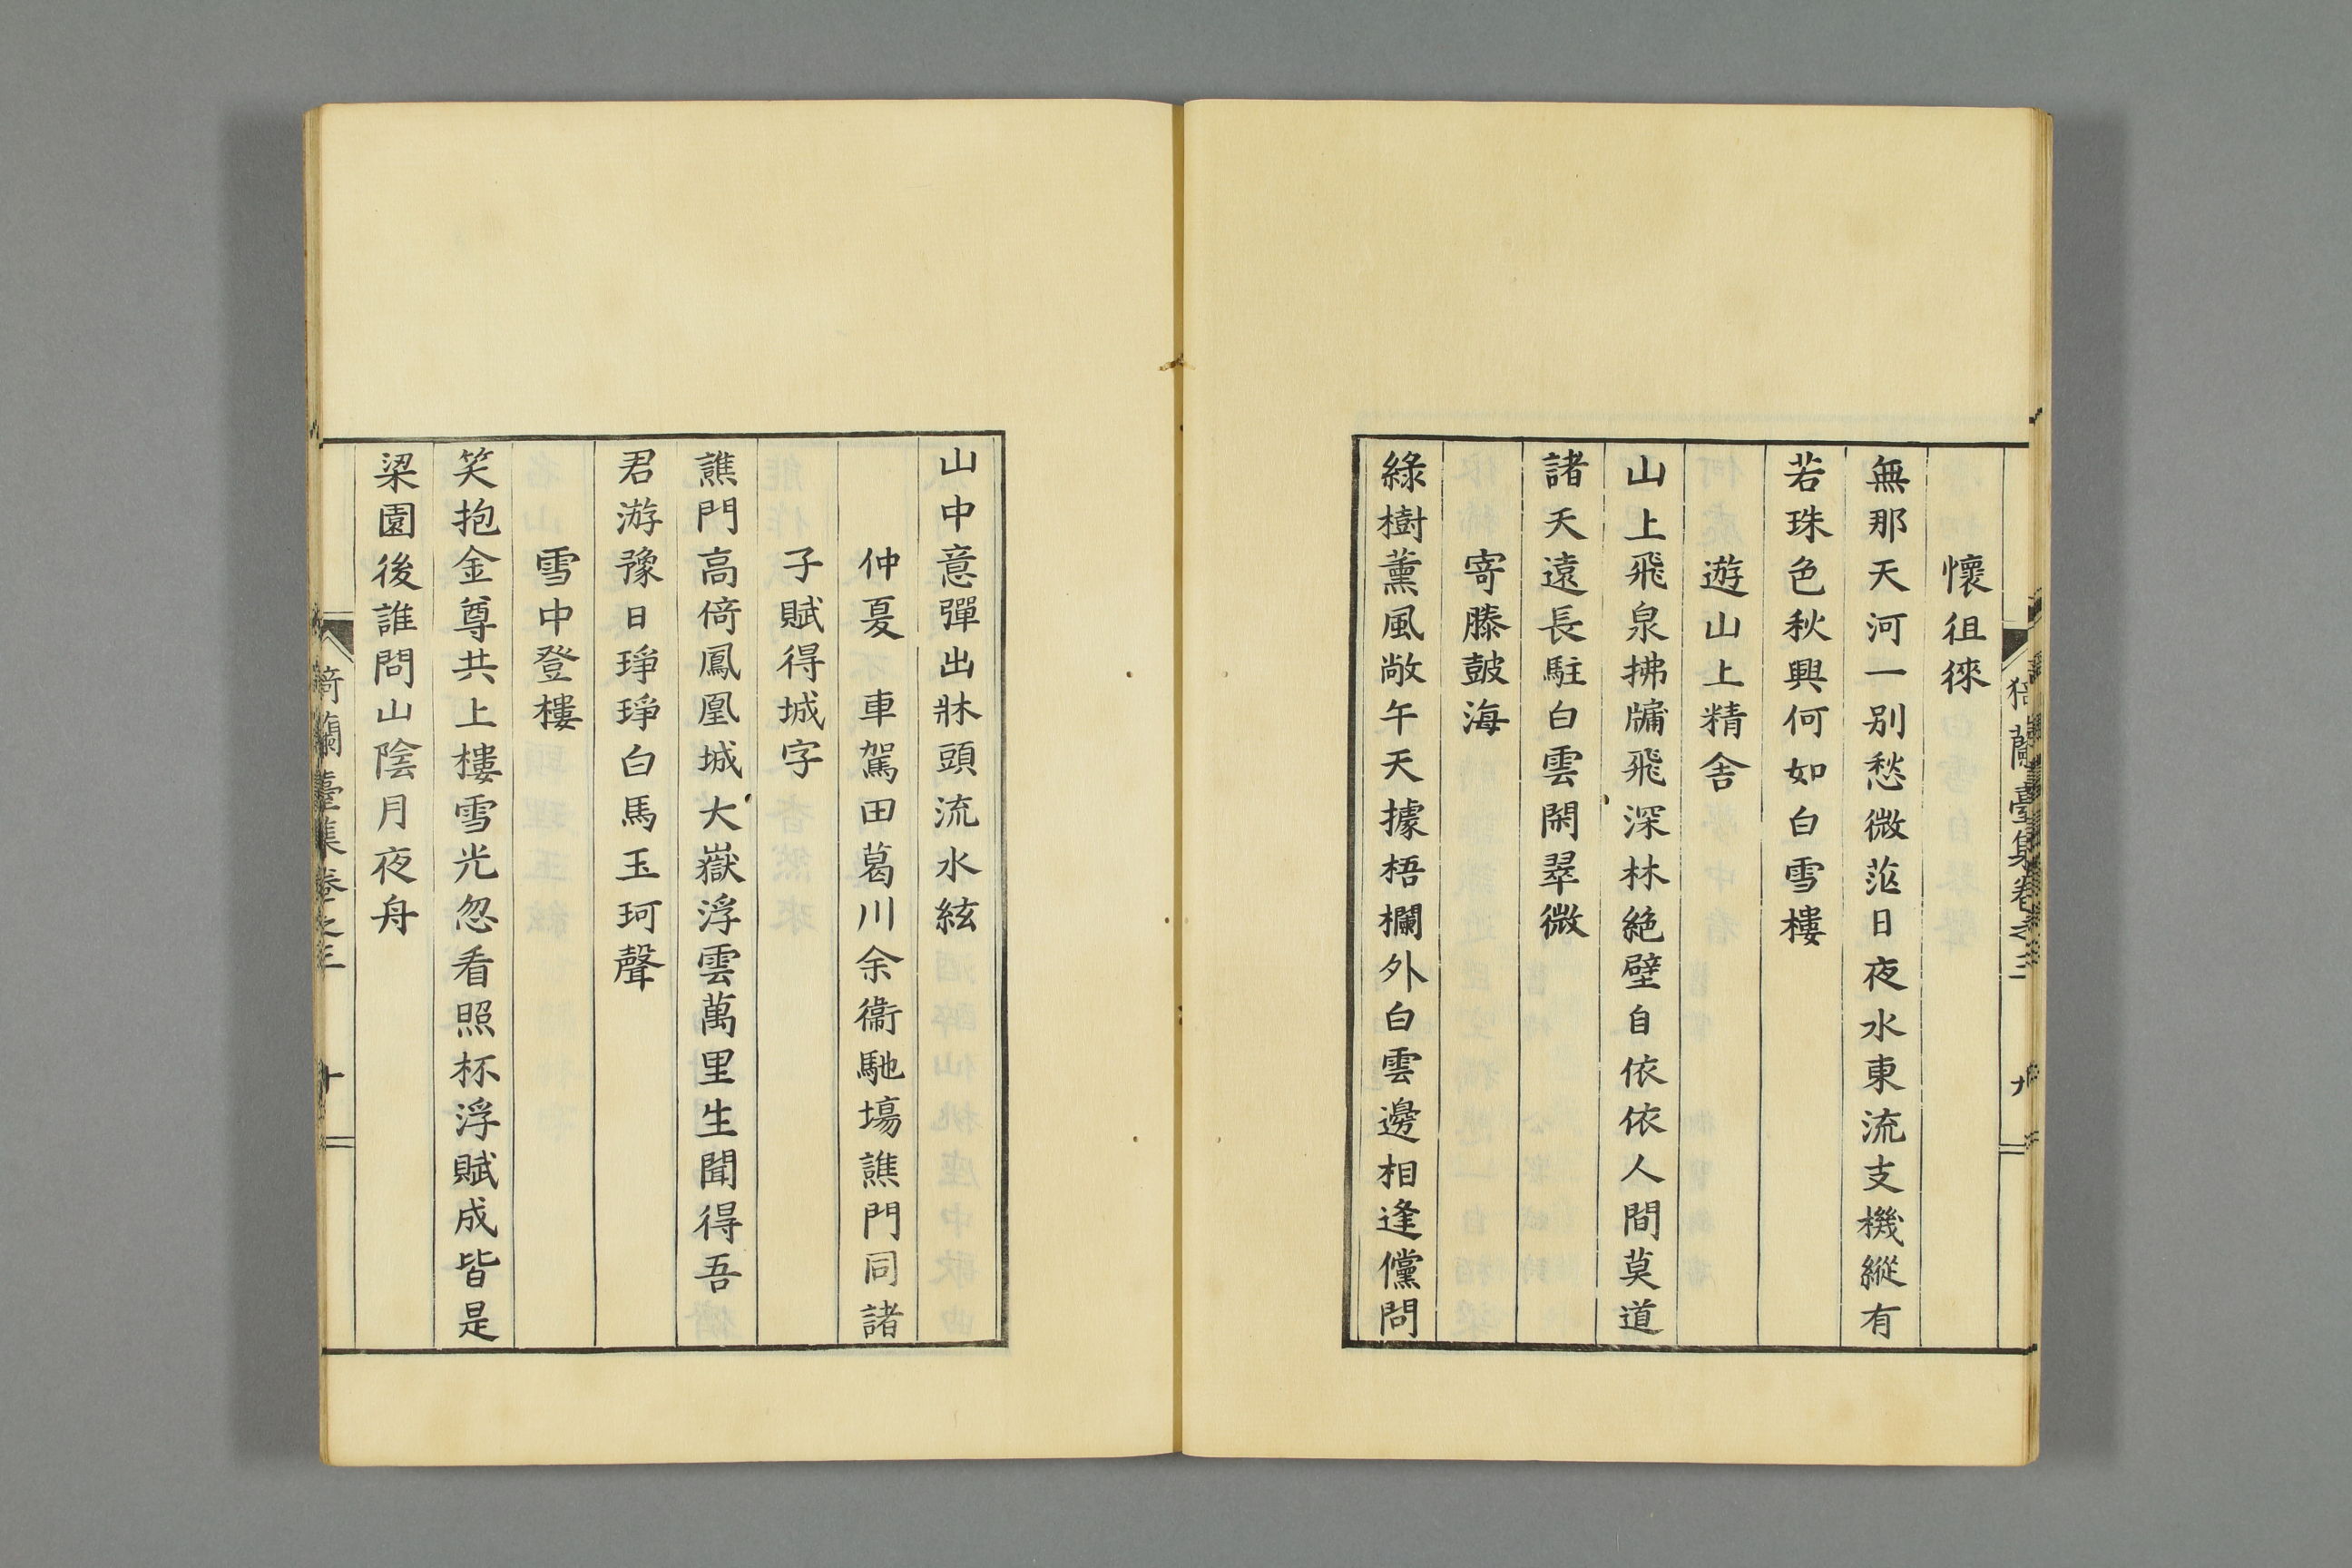 懷徂徠
無那天河一別愁微茫日夜水東流支機縱有
若珠色秋興何如白雪樓
遊山上精舍
山上飛泉拂牖飛深林絶壁自依依人間莫道
諸天遠長駐白雲閑翠微
寄滕皷海
綠樹薰風敞午天據梧欄外白雲邊相逢儻問
山中意彈出牀頭流水絃
仲夏　車駕田葛川余衞馳塲譙門同諸
子賦得城字
譙門高倚鳳凰城大嶽浮雲萬里生聞得吾
君游豫日琤琤白馬玉珂聲
雪中登樓
笑抱金尊共上樓雪光忽看照杯浮賦成皆是
梁園後誰問山陰月夜舟
猗蘭臺集卷之三　十